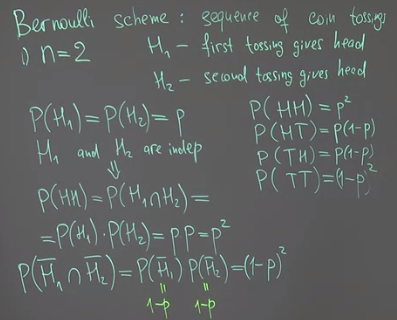 Bernoulli scheme : sequence of coin tossings
1) n=2 H₁ – first tossing gives head
H₂ – second tossing gives head
P(H₁)=P(H₂)=p
H₁ and H₂ are indep
⇓
P(HH)=P(H₁∩H₂)=
=P(H₁)·P(H₂)=pp=p²
P(H̅₁∩H̅₂)=P(H̅₁)P(H̅₂)=(1-p)²
॥ ॥
1-p 1-p
P(HH)=p²
P(HT)=p(1-p)
P(TH)=p(1-p)
P(TT)=(1-p)²